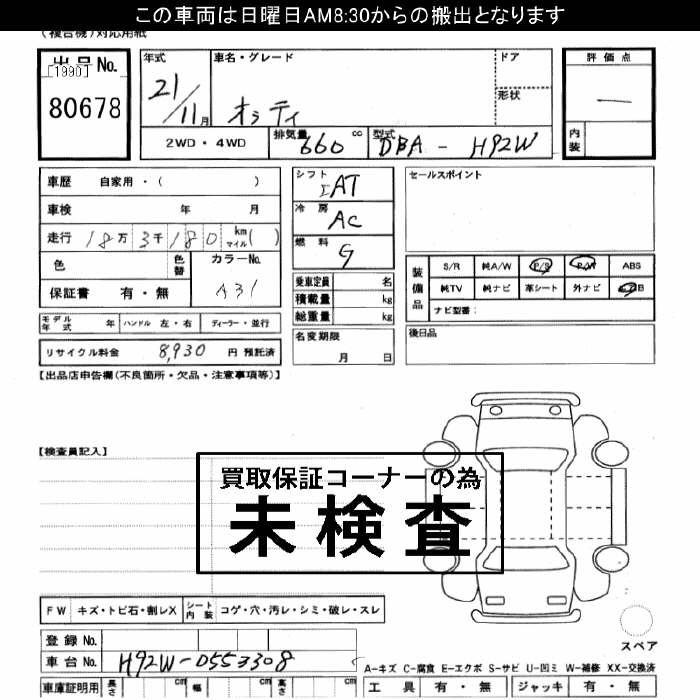 この車両は日曜日AM8:30からの搬出となります
(複合機)対応用紙
出品No. [1990]
80678
年式 21/11月
車名・グレード オッティ
ドア
形状
評価点 一
内装
2WD・4WD
排気量 660 cc
型式 DBA - H92W
車歴 自家用・( )
車検 年 月
走行 18万3千180 km マイル( )
色 色替 カラーNo. A31
保証書 有・無
シフト IAT
冷房 AC
燃料 G
乗車定員 名
積載量 kg
総重量 kg
セールスポイント
装備品
S/R 純A/W P/S P/W ABS
純TV 純ナビ 革シート 外ナビ B
ナビ型番:
モデル年式 年 ハンドル 左・右 ディーラー・並行
リサイクル料金 8,930 円 預託済
名変期限 月 日
後日品
【出品店申告欄(不良箇所・欠品・注意事項等)】
【検査員記入】
買取保証コーナーの為
未検査
FW キズ・トビ石・割レX シート内装 コゲ・穴・汚レ・シミ・破レ・スレ
スペア
登録No.
車台No. H92W-0553308
A-キズ C-腐食 E-エクボ S-サビ U-凹ミ W-補修 XX-交換済
車庫証明用 長さ cm 幅 cm 高さ cm
工具 有・無 ジャッキ 有・無